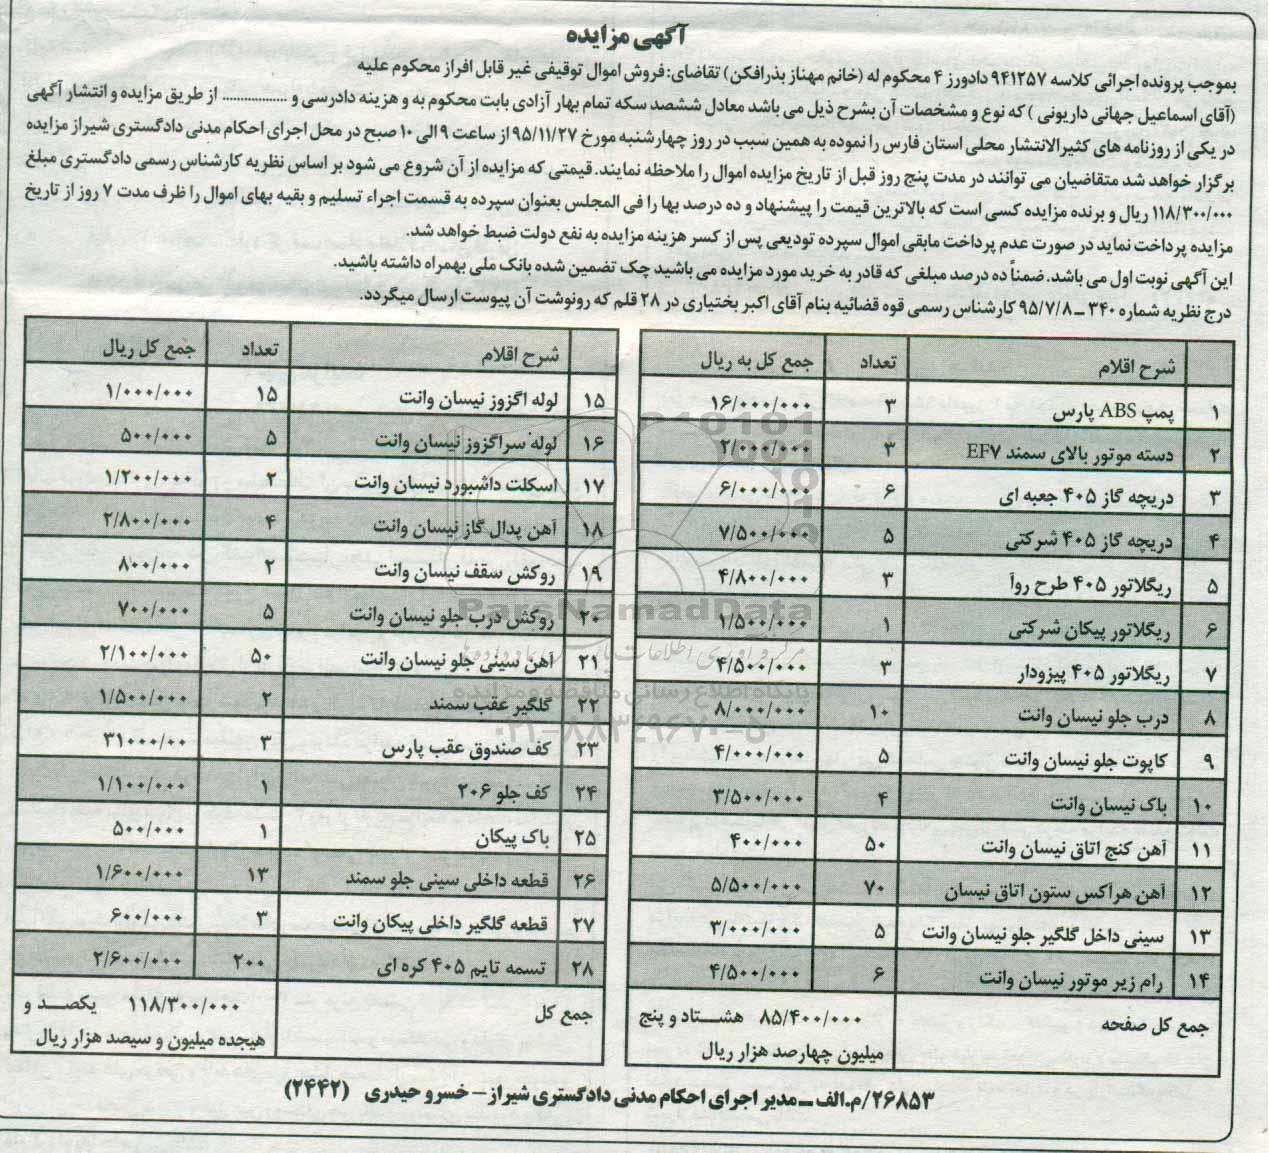 آگهی مزایده
بموجب پرونده اجرائی کلاسه ۹۴۱۲۵۷ دادورز ۴ محکوم له (خانم مهناز بذرافکن) تقاضای: فروش اموال توقیفی غیر قابل افراز محکوم علیه
(آقای اسماعیل جهانی داریونی ) که نوع و مشخصات آن بشرح ذیل می باشد معادل ششصد سکه تمام بهار آزادی بابت محکوم به و هزینه دادرسی و ................. از طریق مزایده و انتشار آگهی
در یکی از روزنامه های کثیرالانتشار محلی استان فارس را نموده به همین سبب در روز چهارشنبه مورخ ۹۵/۱۱/۲۷ از ساعت ۹ الی ۱۰ صبح در محل اجرای احکام مدنی دادگستری شیراز مزایده
برگزار خواهد شد متقاضیان می توانند در مدت پنج روز قبل از تاریخ مزایده اموال را ملاحظه نمایند. قیمتی که مزایده از آن شروع می شود بر اساس نظریه کارشناس رسمی دادگستری مبلغ
۱۱۸/۳۰۰/۰۰۰ ریال و برنده مزایده کسی است که بالاترین قیمت را پیشنهاد و ده درصد بها را فی المجلس بعنوان سپرده به قسمت اجراء تسلیم و بقیه بهای اموال را ظرف مدت ۷ روز از تاریخ
مزایده پرداخت نماید در صورت عدم پرداخت مابقی اموال سپرده تودیعی پس از کسر هزینه مزایده به نفع دولت ضبط خواهد شد.
این آگهی نوبت اول می باشد. ضمناً ده درصد مبلغی که قادر به خرید مورد مزایده می باشید چک تضمین شده بانک ملی بهمراه داشته باشید.
درج نظریه شماره ۳۴۰ ــ ۹۵/۷/۸ کارشناس رسمی قوه قضائیه بنام آقای اکبر بختیاری در ۲۸ قلم که رونوشت آن پیوست ارسال میگردد.
شرح اقلام تعداد جمع کل به ریال
۱ پمپ ABS پارس ۳ ۱۶/۰۰۰/۰۰۰
۲ دسته موتور بالای سمند EF۷ ۳ ۲/۰۰۰/۰۰۰
۳ دریچه گاز ۴۰۵ جعبه ای ۶ ۶/۰۰۰/۰۰۰
۴ دریچه گاز ۴۰۵ شرکتی ۵ ۷/۵۰۰/۰۰۰
۵ ریگلاتور ۴۰۵ طرح روآ ۳ ۴/۸۰۰/۰۰۰
۶ ریگلاتور پیکان شرکتی ۱ ۱/۵۰۰/۰۰۰
۷ ریگلاتور ۴۰۵ پیزودار ۳ ۴/۵۰۰/۰۰۰
۸ درب جلو نیسان وانت ۱۰ ۸/۰۰۰/۰۰۰
۹ کاپوت جلو نیسان وانت ۵ ۴/۰۰۰/۰۰۰
۱۰ باک نیسان وانت ۴ ۳/۵۰۰/۰۰۰
۱۱ آهن کنج اتاق نیسان وانت ۵۰ ۴۰۰/۰۰۰
۱۲ آهن هرآکس ستون اتاق نیسان ۷۰ ۵/۵۰۰/۰۰۰
۱۳ سینی داخل گلگیر جلو نیسان وانت ۵ ۳/۰۰۰/۰۰۰
۱۴ رام زیر موتور نیسان وانت ۶ ۴/۵۰۰/۰۰۰
جمع کل صفحه ۸۵/۴۰۰/۰۰۰ هشــتاد و پنج
میلیون چهارصد هزار ریال
شرح اقلام تعداد جمع کل ریال
۱۵ لوله اگزوز نیسان وانت ۱۵ ۱/۰۰۰/۰۰۰
۱۶ لوله سراگزوز نیسان وانت ۵ ۵۰۰/۰۰۰
۱۷ اسکلت داشبورد نیسان وانت ۲ ۱/۲۰۰/۰۰۰
۱۸ آهن پدال گاز نیسان وانت ۴ ۲/۸۰۰/۰۰۰
۱۹ روکش سقف نیسان وانت ۲ ۸۰۰/۰۰۰
۲۰ روکش درب جلو نیسان وانت ۵ ۷۰۰/۰۰۰
۲۱ آهن سینی جلو نیسان وانت ۵۰ ۲/۱۰۰/۰۰۰
۲۲ گلگیر عقب سمند ۲ ۱/۵۰۰/۰۰۰
۲۳ کف صندوق عقب پارس ۳ ۳۱۰۰۰/۰۰
۲۴ کف جلو ۲۰۶ ۱ ۱/۱۰۰/۰۰۰
۲۵ باک پیکان ۱ ۵۰۰/۰۰۰
۲۶ قطعه داخلی سینی جلو سمند ۱۳ ۱/۶۰۰/۰۰۰
۲۷ قطعه گلگیر داخلی پیکان وانت ۳ ۶۰۰/۰۰۰
۲۸ تسمه تایم ۴۰۵ کره ای ۲۰۰ ۲/۶۰۰/۰۰۰
جمع کل ۱۱۸/۳۰۰/۰۰۰ یکصــد و
هیجده میلیون و سیصد هزار ریال
ParsNamadData
پایگاه اطلاع رسانی مناقصه و مزایده
۰۲۱-۸۸۳۴۹۶۷۰-۵
۲۶۸۵۳/م.الف ــ مدیر اجرای احکام مدنی دادگستری شیراز – خسرو حیدری (۲۴۴۲)